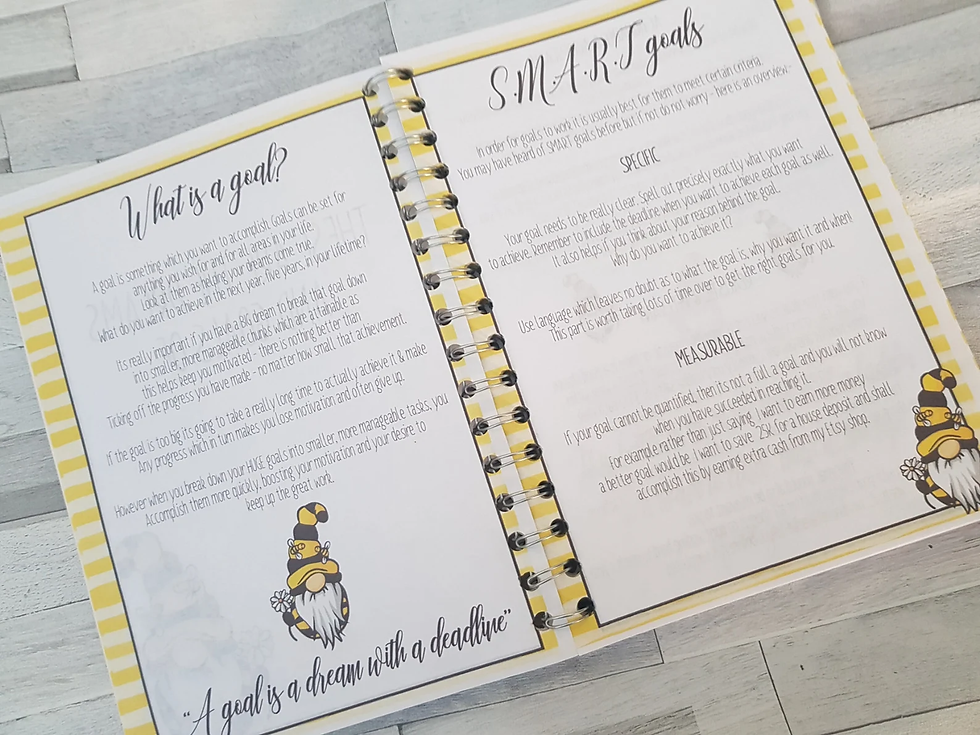 What is a goal?
A goal is something which you want to accomplish. Goals can be set for
anything you wish for and for all areas in your life.
Look at them as helping your dreams come true.
What do you want to achieve in the next year, five years, in your lifetime?
Its really important if you have a BIG dream to break that goal down
into smaller, more manageable chunks which are attainable as
this helps keep you motivated - there is nothing better than
Ticking off the progress you have made - no matter how small that achievement.
If the goal is too big its going to take a really long time to actually achieve it & make
Any progress which in turn makes you lose motivation and often give up.
However when you break down your HUGE goals into smaller, more manageable tasks, you
Accomplish them more quickly, boosting your motivation and your desire to
keep up the great work.
"A goal is a dream with a deadline"
S.M.A.R.T goals
In order for goals to work it is usually best for them to meet certain criteria.
You may have heard of SMART goals before but if not do not worry - here is an overview-
SPECIFIC
Your goal needs to be really clear. Spell out precisely exactly what you want
to achieve. Remember to include the deadline when you want to achieve each goal as well.
It also helps if you think about your reason behind the goal.
Why do you want to achieve it?
Use language which leaves no doubt as to what the goal is, why you want it and when!
This part is worth taking lots of time over to get the right goals for you.
MEASURABLE
If your goal cannot be quantified, then its not a full a goal and you will not know
when you have succeeded in reaching it.
For example rather than just saying, I want to earn more money
a better goal would be, I want to save 25k for a house deposit and shall
accomplish this by earning extra cash from my Etsy shop.